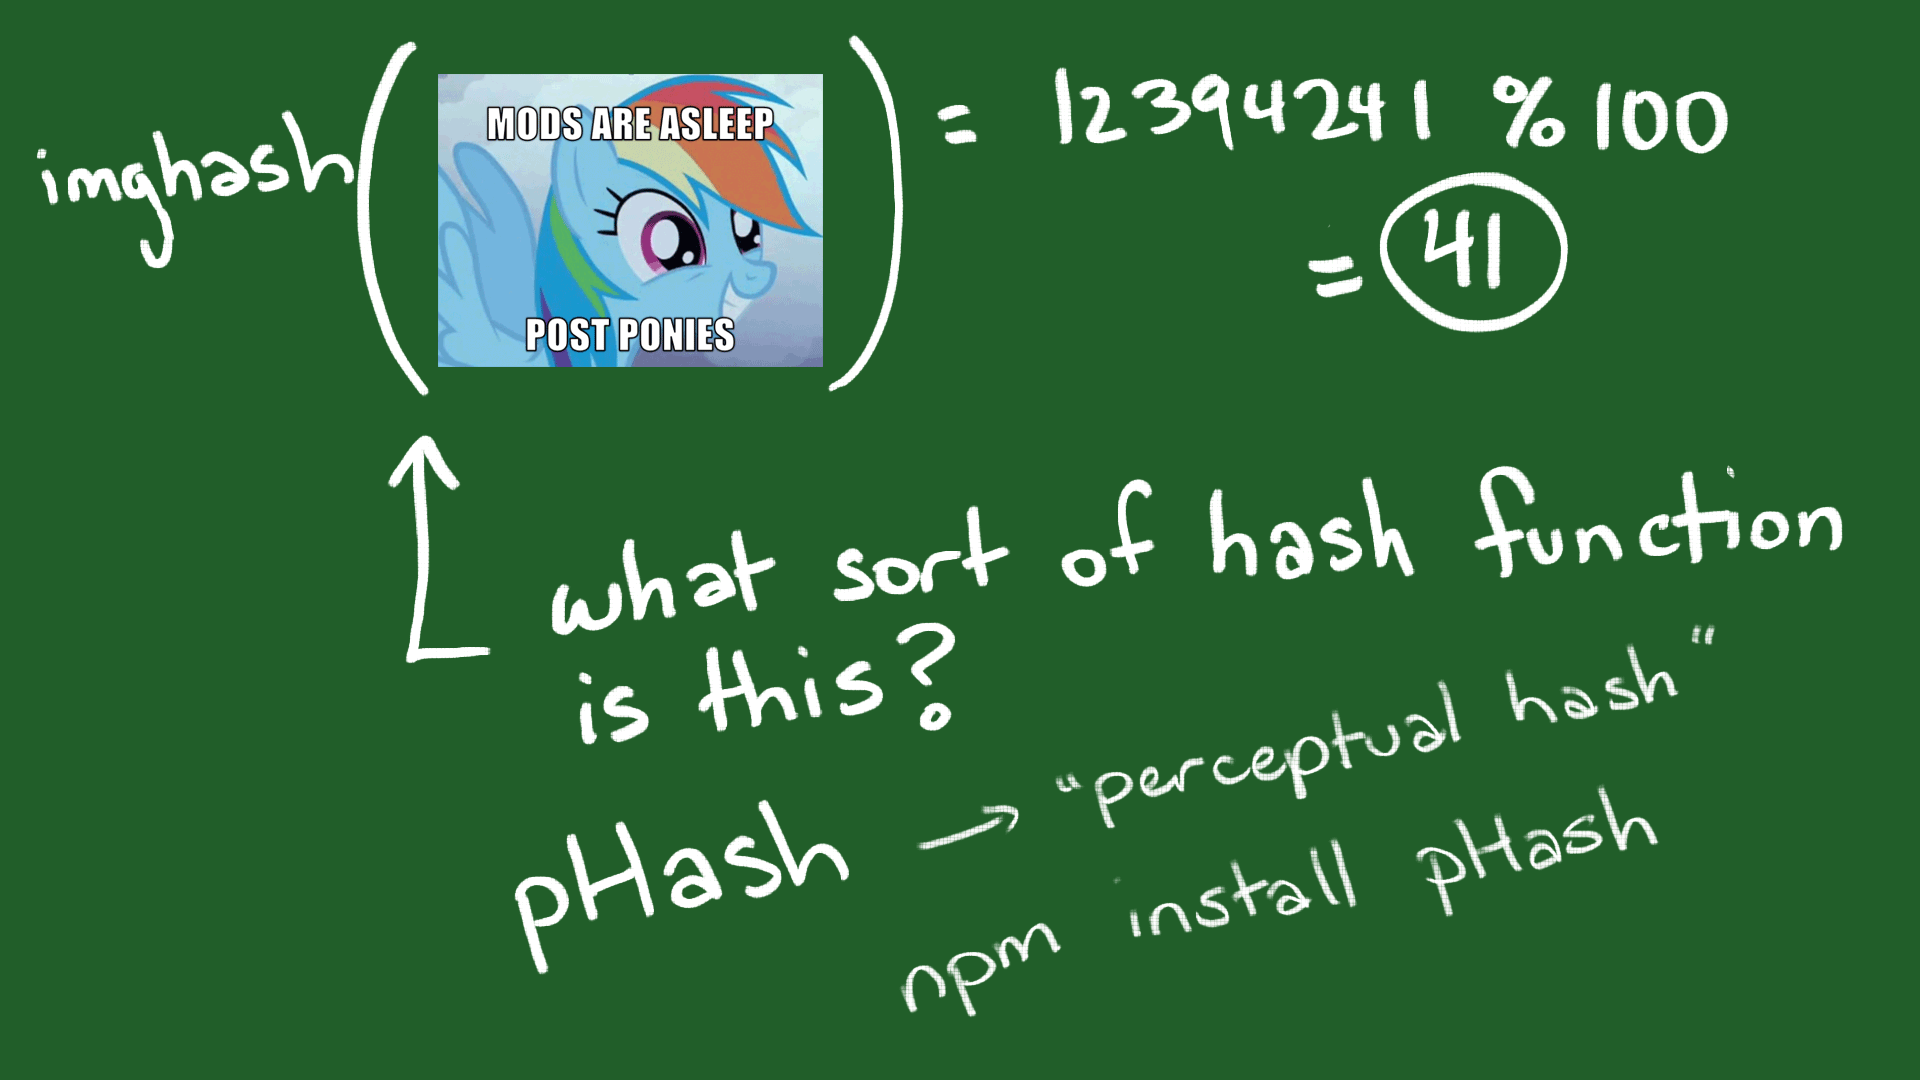 imghash( MODS ARE ASLEEP POST PONIES ) = 12394241 % 100
= 41
what sort of hash function
is this?
pHash → "perceptual hash"
npm install pHash